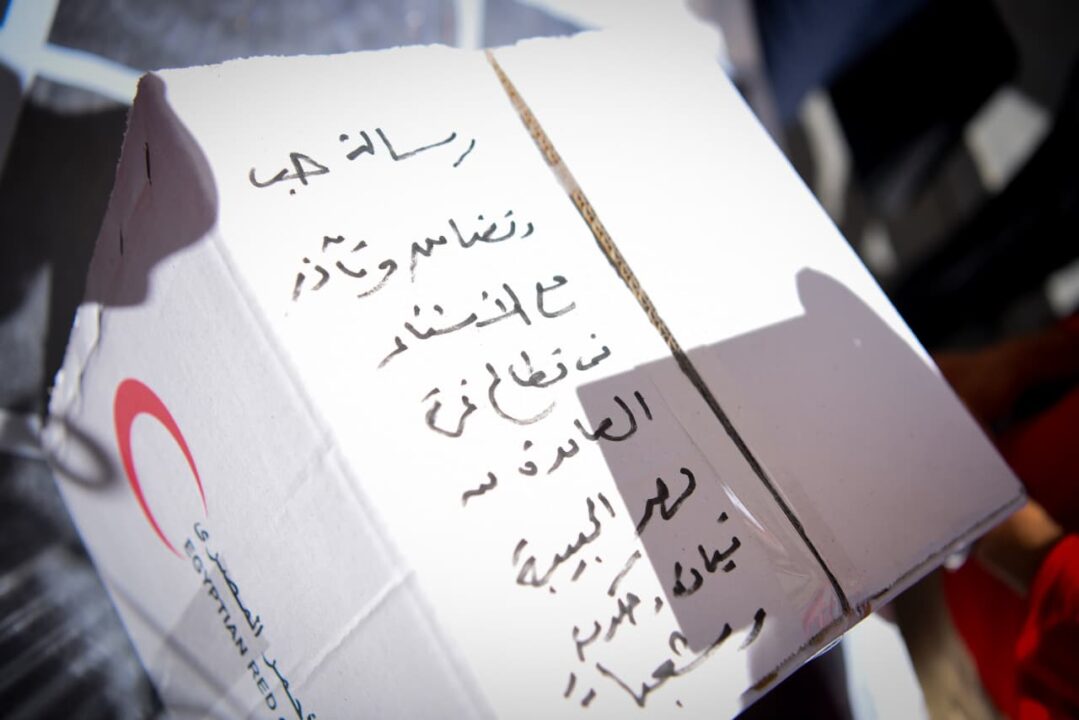 رسالة حب
وتضامن وتآذر
مع الأشقاء
فى قطاع غزة
الصامدة من
مصر الحبيبة
قيادة وحكومة
وشعبا
الهلال الأحمر المصرى
EGYPTIAN RED